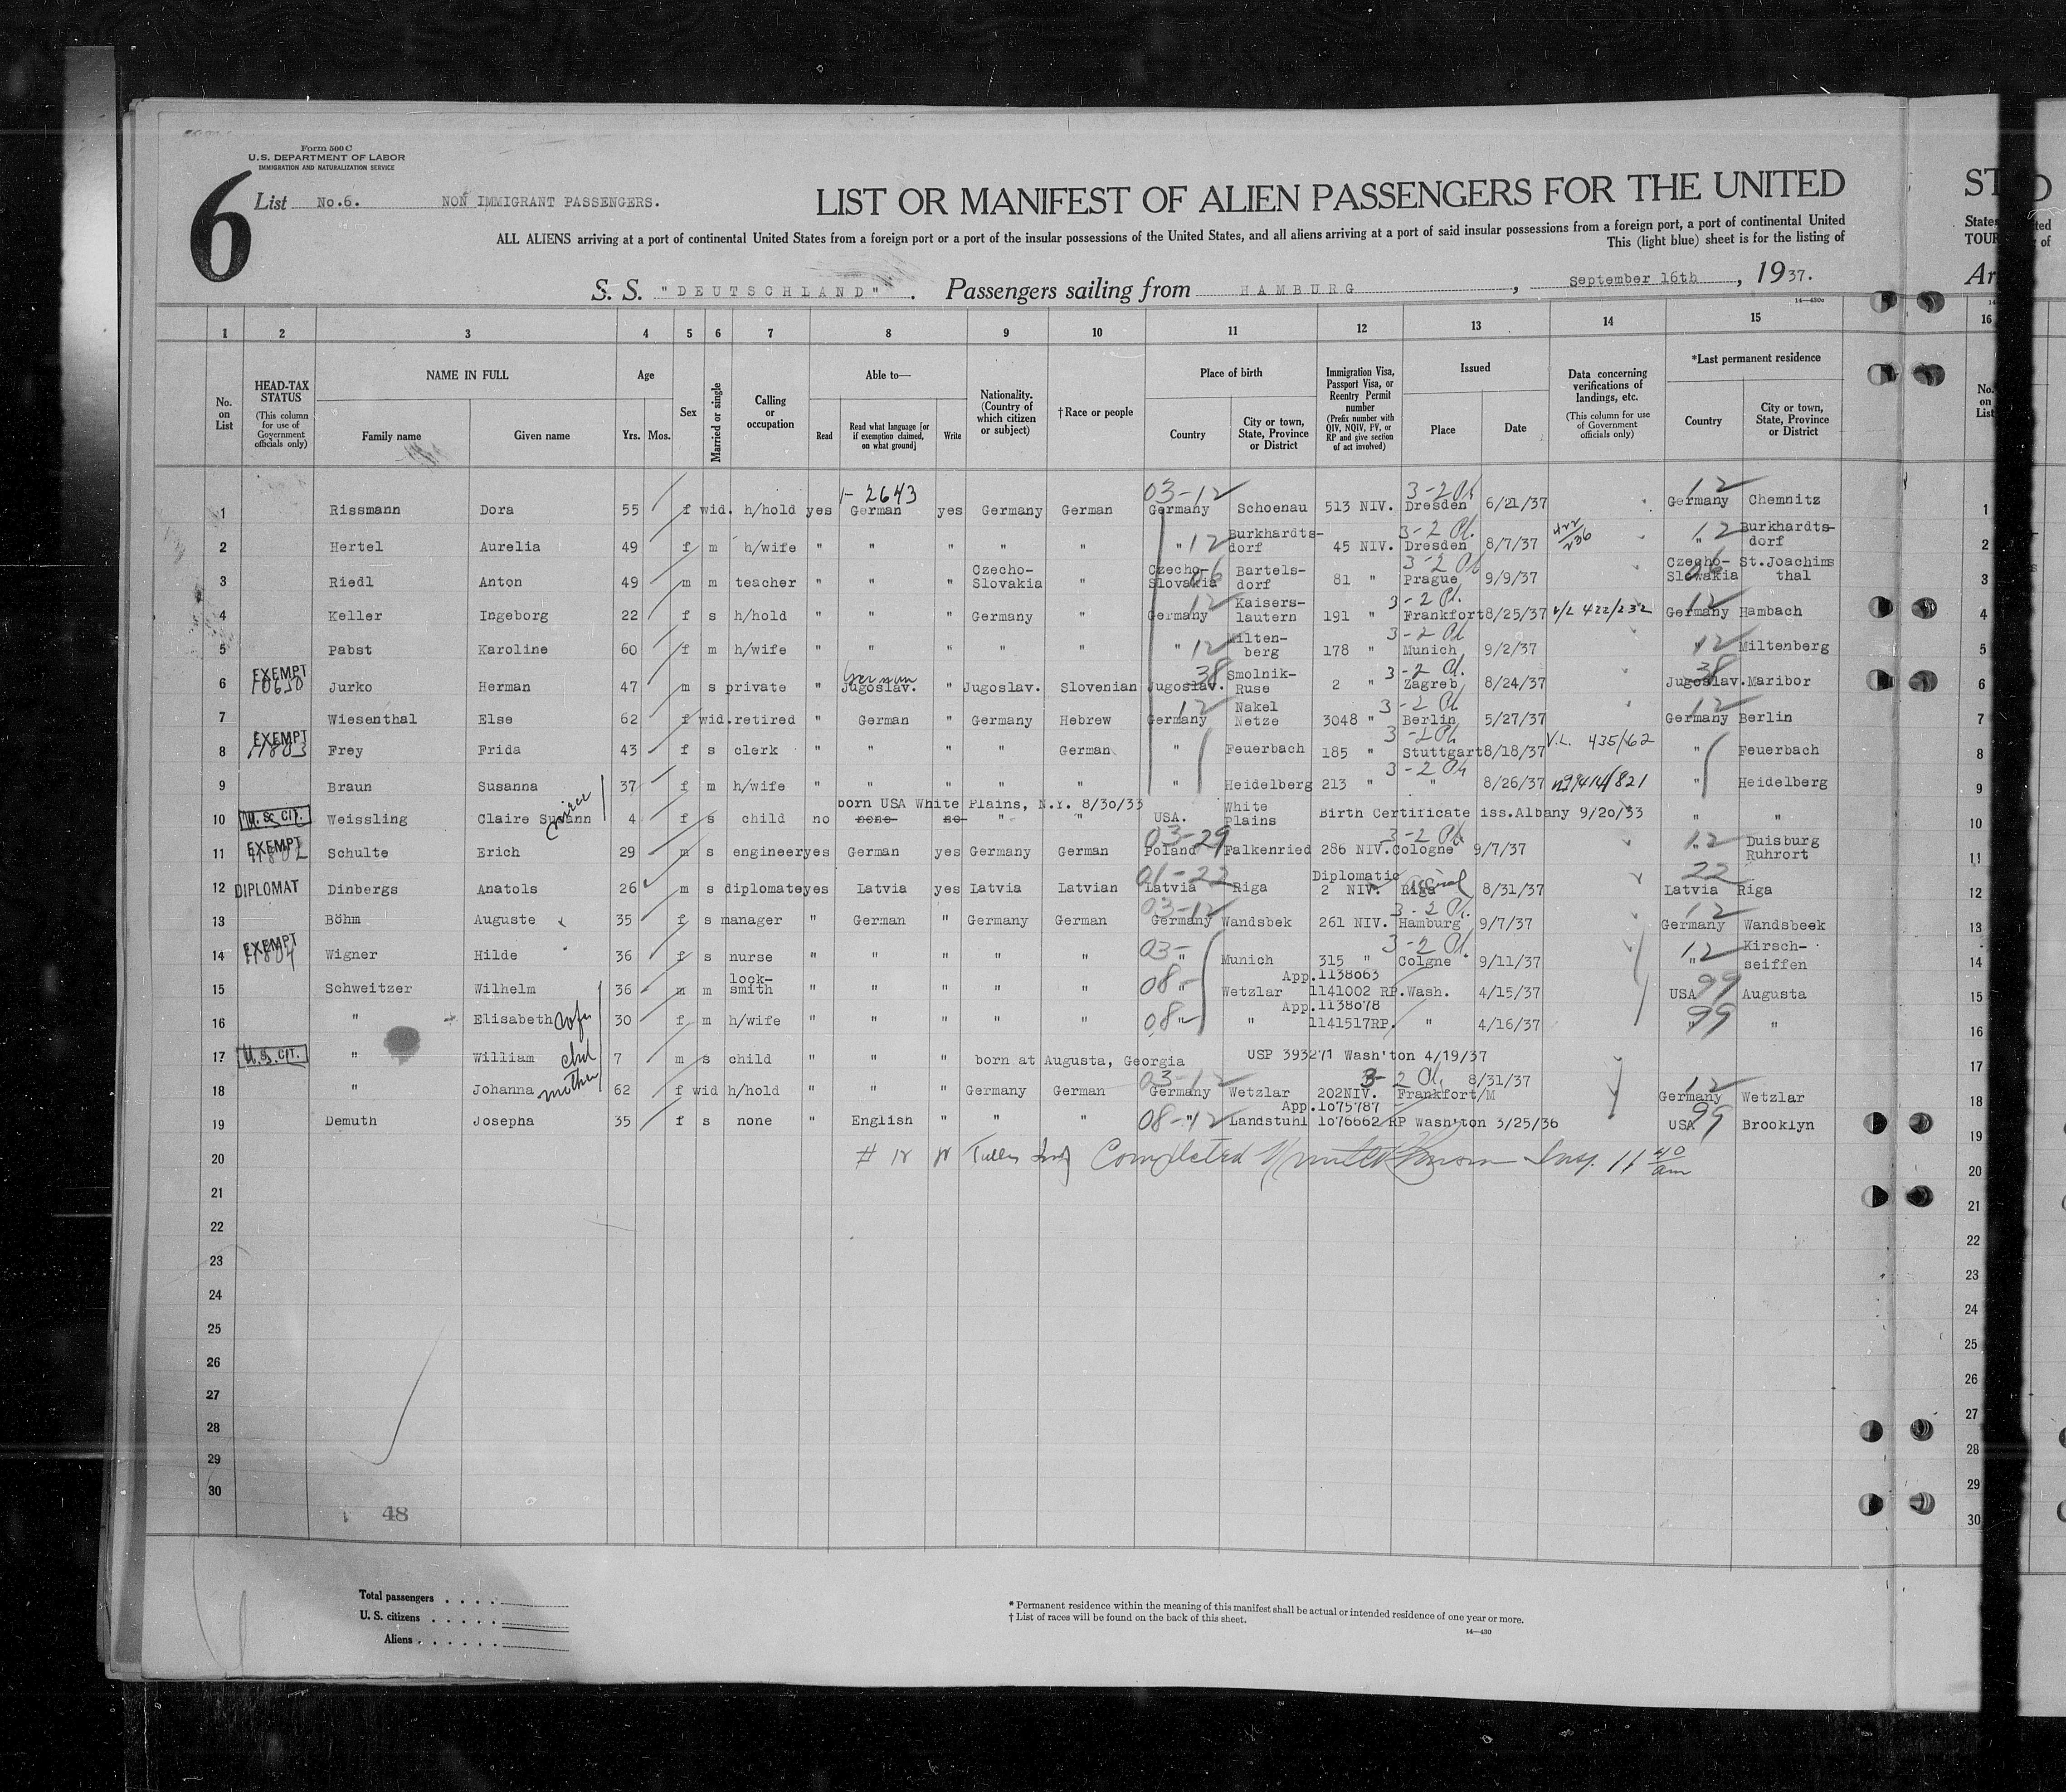 Form 500 C
U.S. DEPARTMENT OF LABOR
IMMIGRATION AND NATURALIZATION SERVICE
6
List No.6. NON IMMIGRANT PASSENGERS.
LIST OR MANIFEST OF ALIEN PASSENGERS FOR THE UNITED
ST
D
ALL ALIENS arriving at a port of continental United States from a foreign port or a port of the insular possessions of the United States, and all aliens arriving at a port of said insular possessions from a foreign port, a port of continental United
States,
This (light blue) sheet is for the listing of
TOUR
of
S. S. "DEUTSCHLAND". Passengers sailing from HAMBURG, September 16th, 1937.
Ar
14—430c
1 2 3 4 5 6 7 8 9 10 11 12 13 14 15 16
No. on List
HEAD-TAX STATUS (This column for use of Government officials only)
NAME IN FULL Family name Given name
Age Yrs. Mos.
Sex
Married or single
Calling or occupation
Able to— Read Read what language [or if exemption claimed, on what ground] Write
Nationality. (Country of which citizen or subject)
†Race or people
Place of birth Country City or town, State, Province or District
Immigration Visa, Passport Visa, or Reentry Permit number (Prefix number with QIV, NQIV, PV, or RP and give section of act involved)
Issued Place Date
Data concerning verifications of landings, etc. (This column for use of Government officials only)
*Last permanent residence Country City or town, State, Province or District
No. on List
1- 2643 03-12 3-2 12
1 Rissmann Dora 55 f wid. h/hold yes German yes Germany German Germany Schoenau 513 NIV. Dresden 6/21/37 Germany Chemnitz 1
2 Hertel Aurelia 49 f m h/wife " " " " " " 12 Burkhardts-dorf 45 NIV. 3-2 Dresden 8/7/37 " 12 Burkhardts-dorf 2
3 Riedl Anton 49 m m teacher " " " Czecho-Slovakia " Czecho-Slovakia 06 Bartels-dorf 81 " 3-2 Prague 9/9/37 Czecho-Slovakia 06 St.Joachims thal 3
4 Keller Ingeborg 22 f s h/hold " " " Germany " Germany 12 Kaisers-lautern 191 " 3-2 Frankfort 8/25/37 V/L 422/232 Germany 12 Hambach 4
5 Pabst Karoline 60 f m h/wife " " " " " " 12 Milten-berg 178 " 3-2 Munich 9/2/37 " 12 Miltenberg 5
6 EXEMPT 10650 Jurko Herman 47 m s private " German Jugoslav. " Jugoslav. Slovenian Jugoslav. 38 Smolnik-Ruse 2 " 3-2 Zagreb 8/24/37 Jugoslav. 38 Maribor 6
7 Wiesenthal Else 62 f wid. retired " German " Germany Hebrew Germany 12 Nakel Netze 3048 " 3-2 Berlin 5/27/37 Germany 12 Berlin 7
8 EXEMPT 11803 Frey Frida 43 f s clerk " " " " German " Feuerbach 185 " 3-2 Stuttgart 8/18/37 V.L. 435/62 " Feuerbach 8
9 Braun Susanna 37 f m h/wife " " " " " " Heidelberg 213 " 3-2 " 8/26/37 " Heidelberg 9
born USA White Plains, N.Y. 8/30/33
10 U.S. CIT. Weissling Claire Susann niece 4 f s child no none no " " USA. White Plains Birth Certificate iss.Albany 9/20/33 " " 10
11 EXEMPT 11802 Schulte Erich 29 m s engineer yes German yes Germany German 03-29 Poland Falkenried 286 NIV. 3-2 Cologne 9/7/37 " 12 Duisburg Ruhrort 11
12 DIPLOMAT Dinbergs Anatols 26 m s diplomate yes Latvia yes Latvia Latvian 01-22 Latvia Riga Diplomatic 2 NIV. Riga 8/31/37 22 Latvia Riga 12
13 Böhm Auguste 35 f s manager " German " Germany German 03-12 Germany Wandsbek 261 NIV. 3-2 Hamburg 9/7/37 12 Germany Wandsbeek 13
14 EXEMPT 11804 Wigner Hilde 36 f s nurse " " " " " 03- " Munich 315 " 3-2 Colgne " 9/11/37 12 " Kirsch-seiffen 14
15 Schweitzer Wilhelm 36 m m lock-smith " " " " " 08- " Wetzlar App.1138063 1141002 RP. Wash. 4/15/37 USA 99 Augusta 15
16 " Elisabeth wife 30 f m h/wife " " " " " 08- " " App.1138078 1141517RP. " 4/16/37 " 99 " 16
17 U.S. CIT. " William chd 7 m s child " " " born at Augusta, Georgia USP 393271 Wash'ton 4/19/37 17
18 " Johanna mother 62 f wid h/hold " " " Germany German 03-12 Germany Wetzlar 202NIV. 3-2 Frankfort/M 8/31/37 12 Germany Wetzlar 18
19 Demuth Josepha 35 f s none " English " " " 08-12 " Landstuhl App.1075787 1076662 RP Wash'ton 3/25/36 USA 99 Brooklyn 19
20 # 12 Completed Insp. 11 40 am 20
21 21
22 22
23 23
24 24
25 25
26 26
27 27
28 28
29 29
30 30
48
Total passengers
U. S. citizens
Aliens
* Permanent residence within the meaning of this manifest shall be actual or intended residence of one year or more.
† List of races will be found on the back of this sheet.
14—430